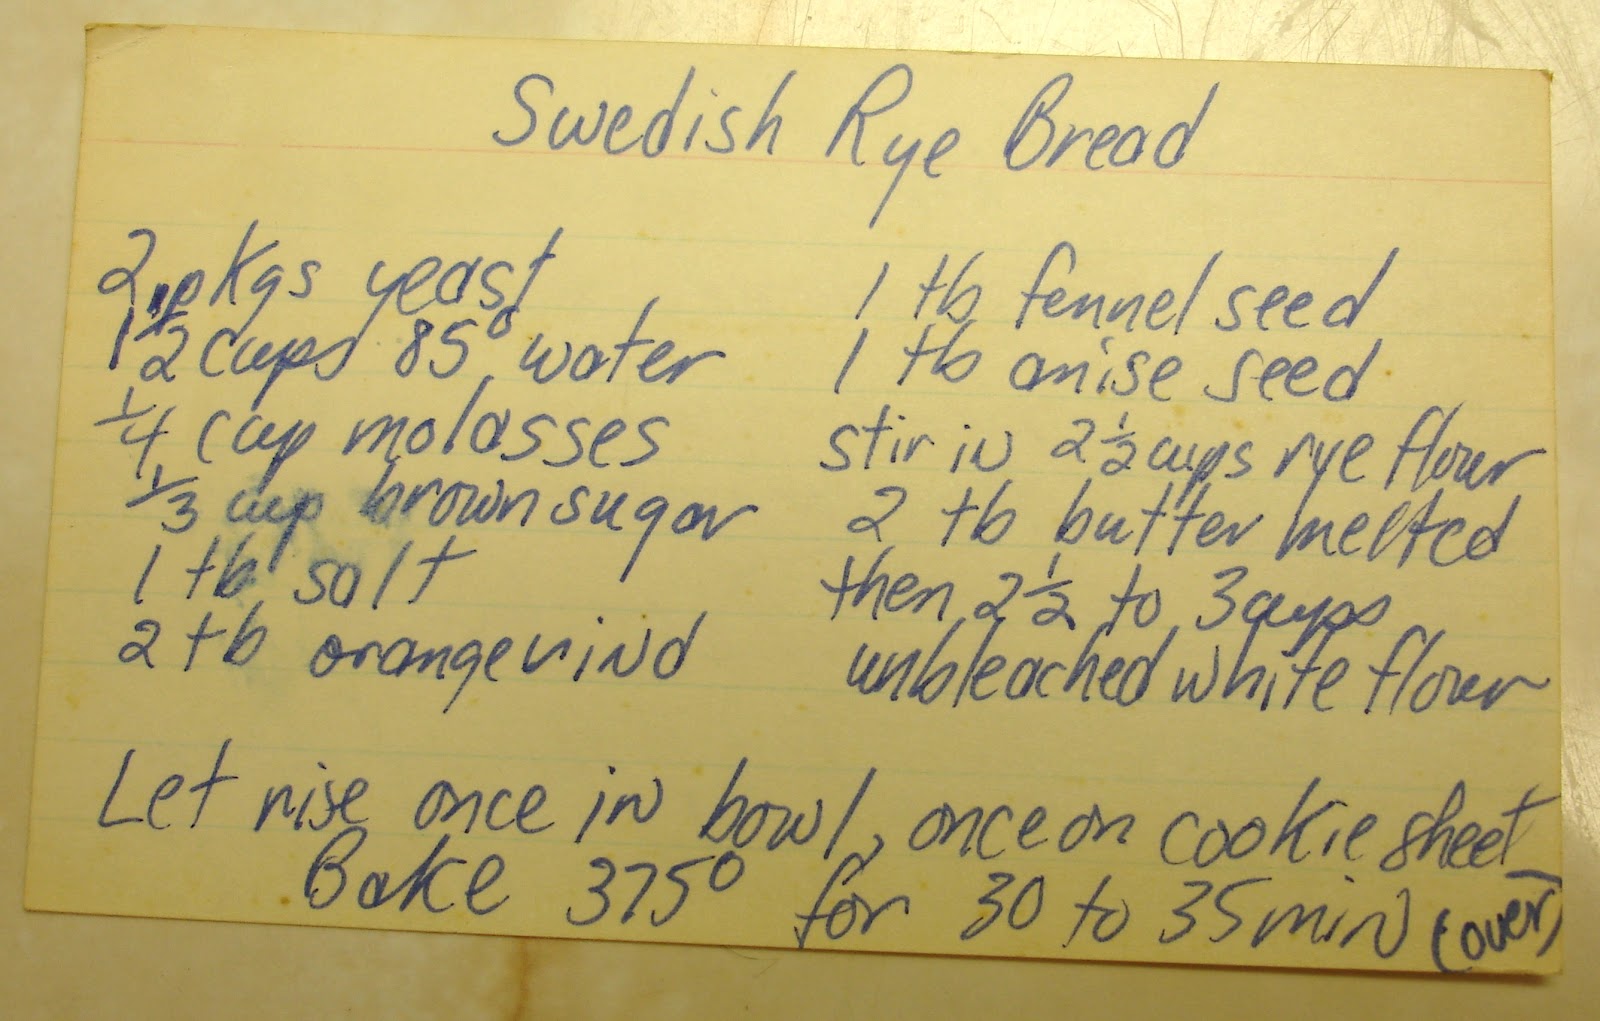 Swedish Rye Bread
2 pkgs yeast
1 1/2 cups 85° water
1/4 cup molasses
1/3 cup brown sugar
1 tb salt
2 tb orange rind
1 tb fennel seed
1 tb anise seed
stir in 2 1/2 cups rye flour
2 tb butter melted
then 2 1/2 to 3 cups
unbleached white flour
Let rise once in bowl, once on cookie sheet
Bake 375° for 30 to 35 min (over)